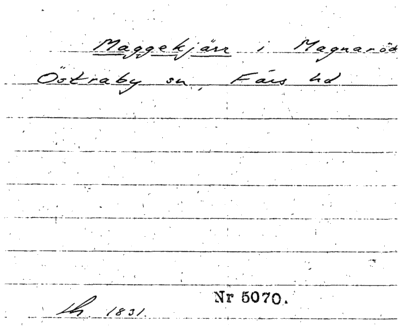 Maggekjärr i Magnaröd
Östraby sn, Färs hd
Nr 5070.
1831.